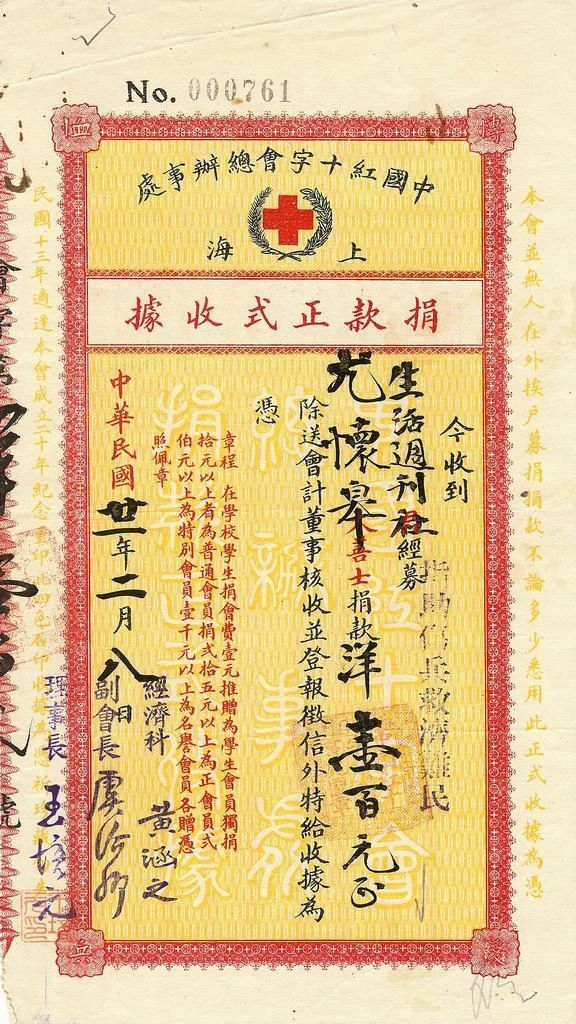 No. 000761
中國紅十字會總辦事處
上海
捐款正式收據
本會並無人在外挨戶募捐捐款不論多少悉用此正式收據為憑
今收到
生活週刊社君經募
指助傷兵救濟難民
尤懷皋善士捐款洋壹百元正
除送會計董事核收並登報徵信外特給收據為
憑
章程 在學校學生捐會費壹元推贈為學生會員獨捐
拾元以上者為普通會員捐弍拾五元以上為正會員弍
伯元以上為特別會員壹千元以上為名譽會員各贈憑
照佩章
中華民國廿一年二月八日
經濟科 黃涵之
副會長 虞洽卿
理事長 王培元
民國十三年適逢本會成立二十年紀念重印
博
恤